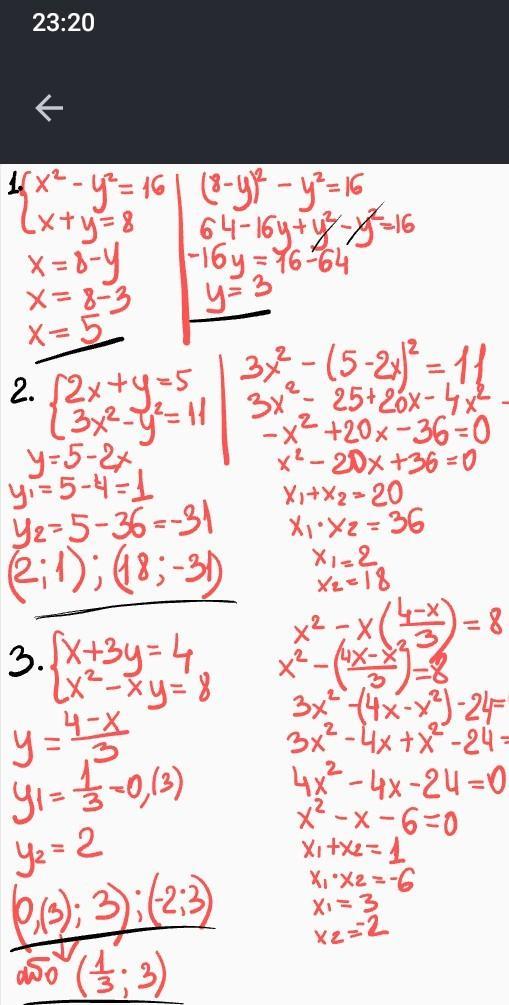 23:20
1. { x² - y² = 16
x + y = 8
x = 8-y
x = 8-3
x = 5
(8-y)² - y² = 16
64-16y+y²-y²=16
-16y = 16-64
y = 3
2. { 2x+y=5
3x²-y²=11
y=5-2x
y₁=5-4=1
y₂=5-36=-31
(2;1);(18;-31)
3x² - (5-2x)² = 11
3x² - 25+20x- 4x² -
-x² +20x-36=0
x² - 20x+36=0
x₁+x₂=20
x₁·x₂=36
x₁=2
x₂=18
3. { x+3y=4
x²-xy=8
y = (4-x)/3
y₁ = 1/3 = 0,(3)
y₂ = 2
(0,(3); 3);(-2;3)
або (1/3; 3)
x² - x((4-x)/3) = 8
x² - ((4x-x²)/3) = 8
3x² -(4x-x²)-24=
3x² -4x+x² -24=
4x² -4x-24=0
x² -x-6=0
x₁+x₂=1
x₁·x₂=-6
x₁=3
x₂=-2